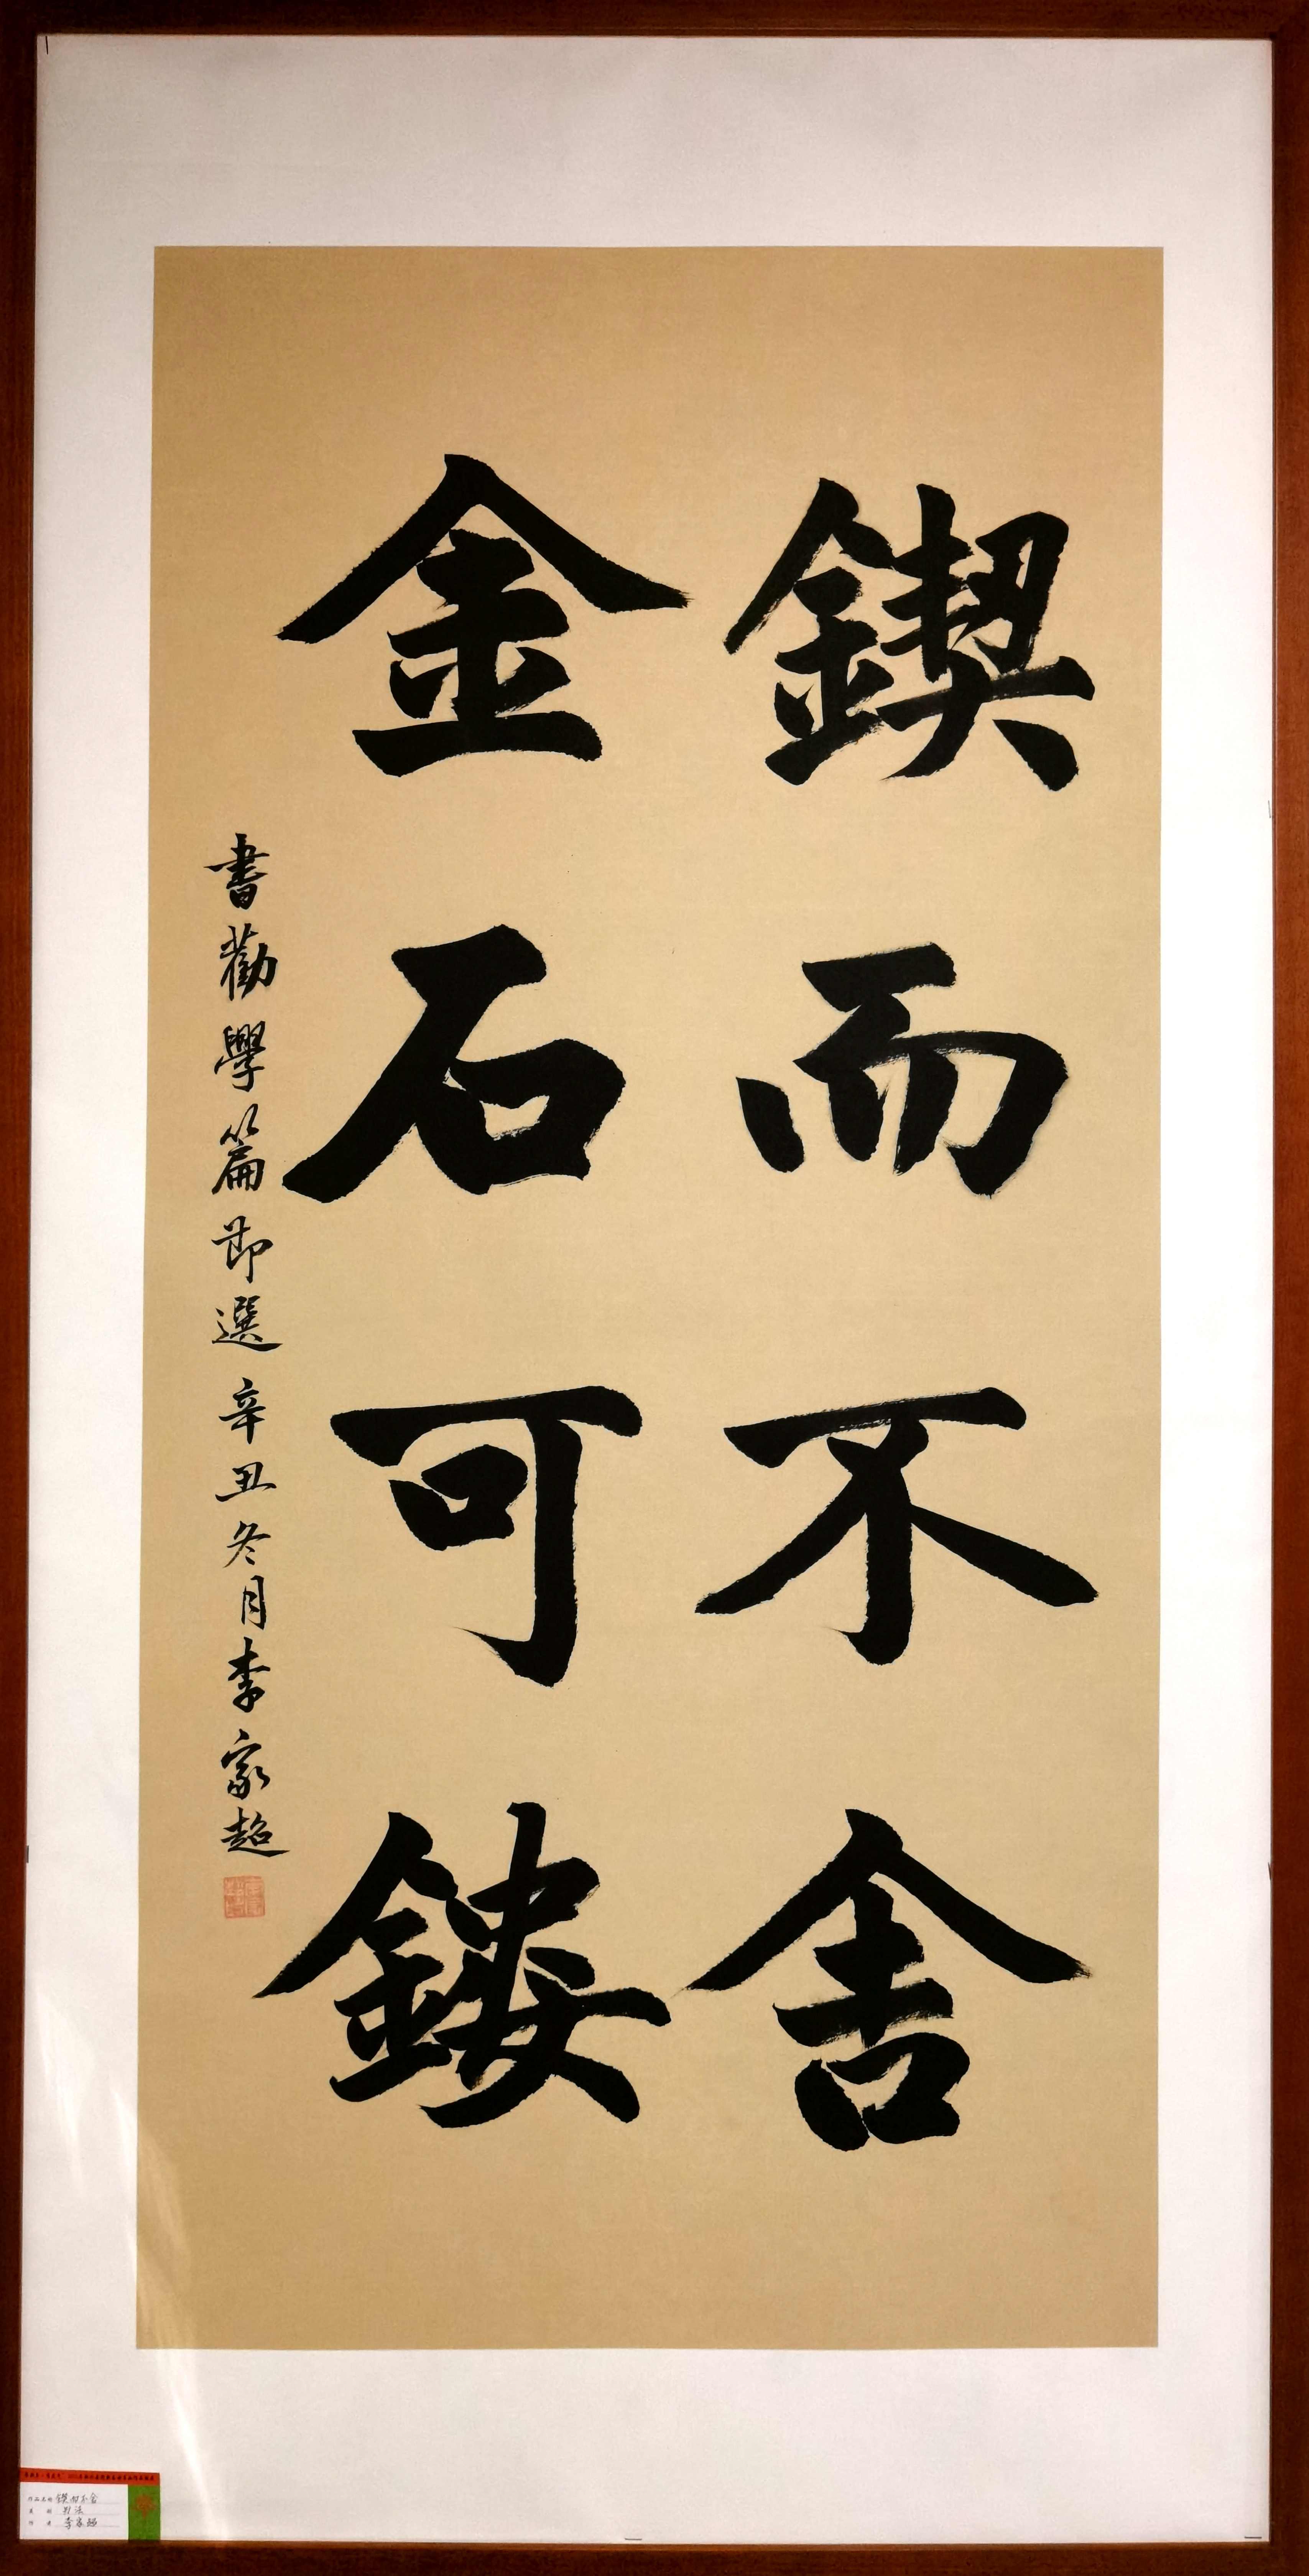 鍥而不舍
金石可鏤
書勸學篇節選 辛丑冬月李家超
作品名称 鍥而不舍
类 别 书法
作 者 李家超